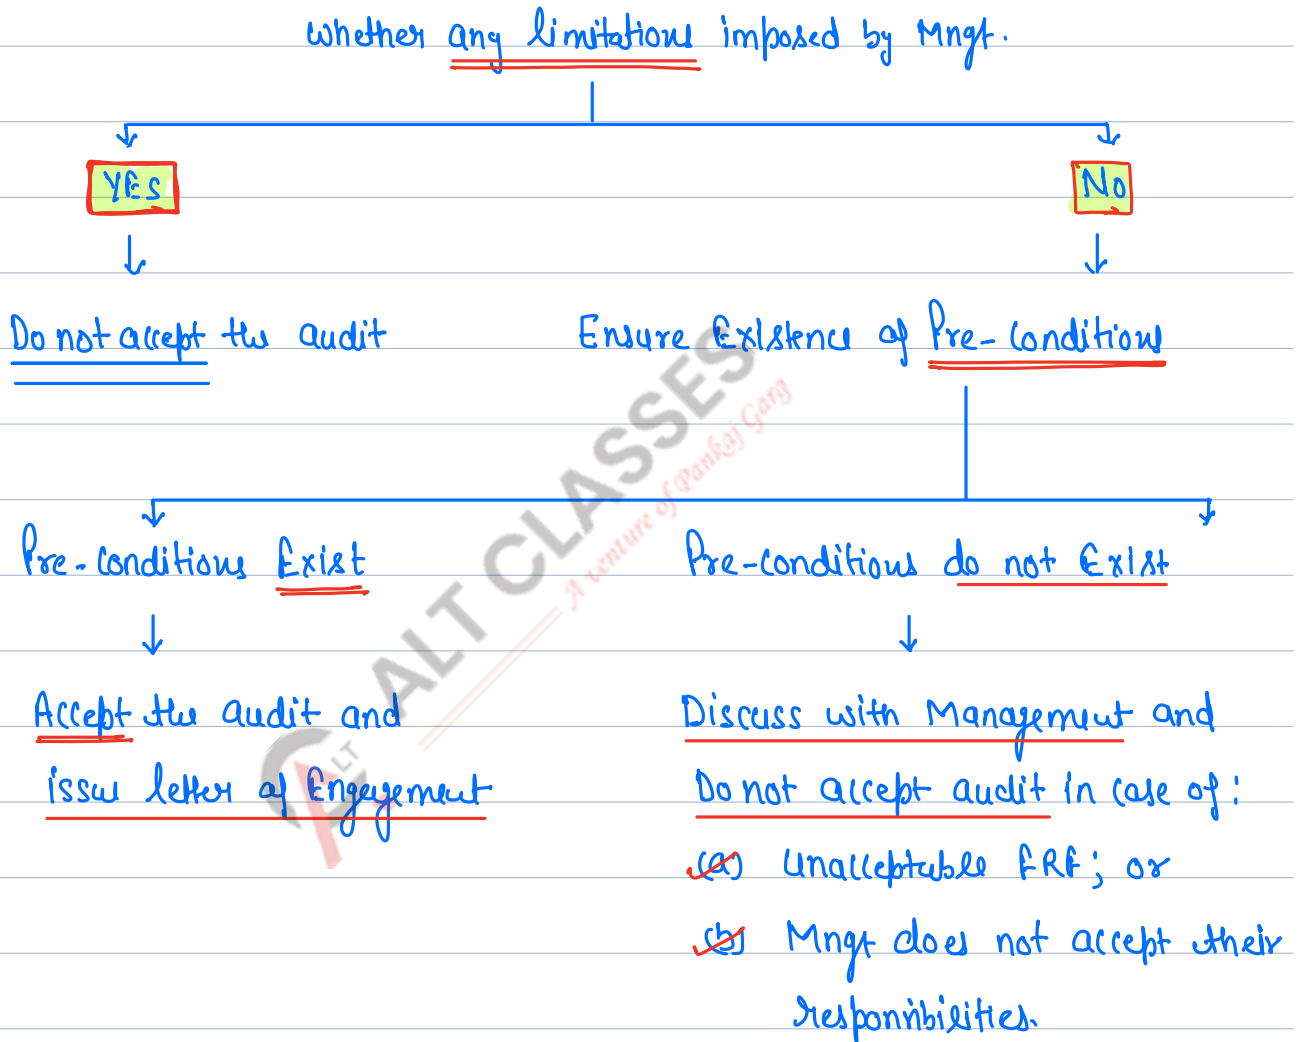 Whether any limitations imposed by Mngt.
YES
No
Do not accept the audit
Ensure Existence of Pre-Conditions
Pre-Conditions Exist
Pre-Conditions do not Exist
Accept the audit and
issue letter of Engagement
Discuss with Management and
Do not accept audit in case of:
(a) Unacceptable FRF; or
(b) Mngt does not accept their
responsibilities.
ALT CLASSES
A venture of Pankaj Garg
ALT